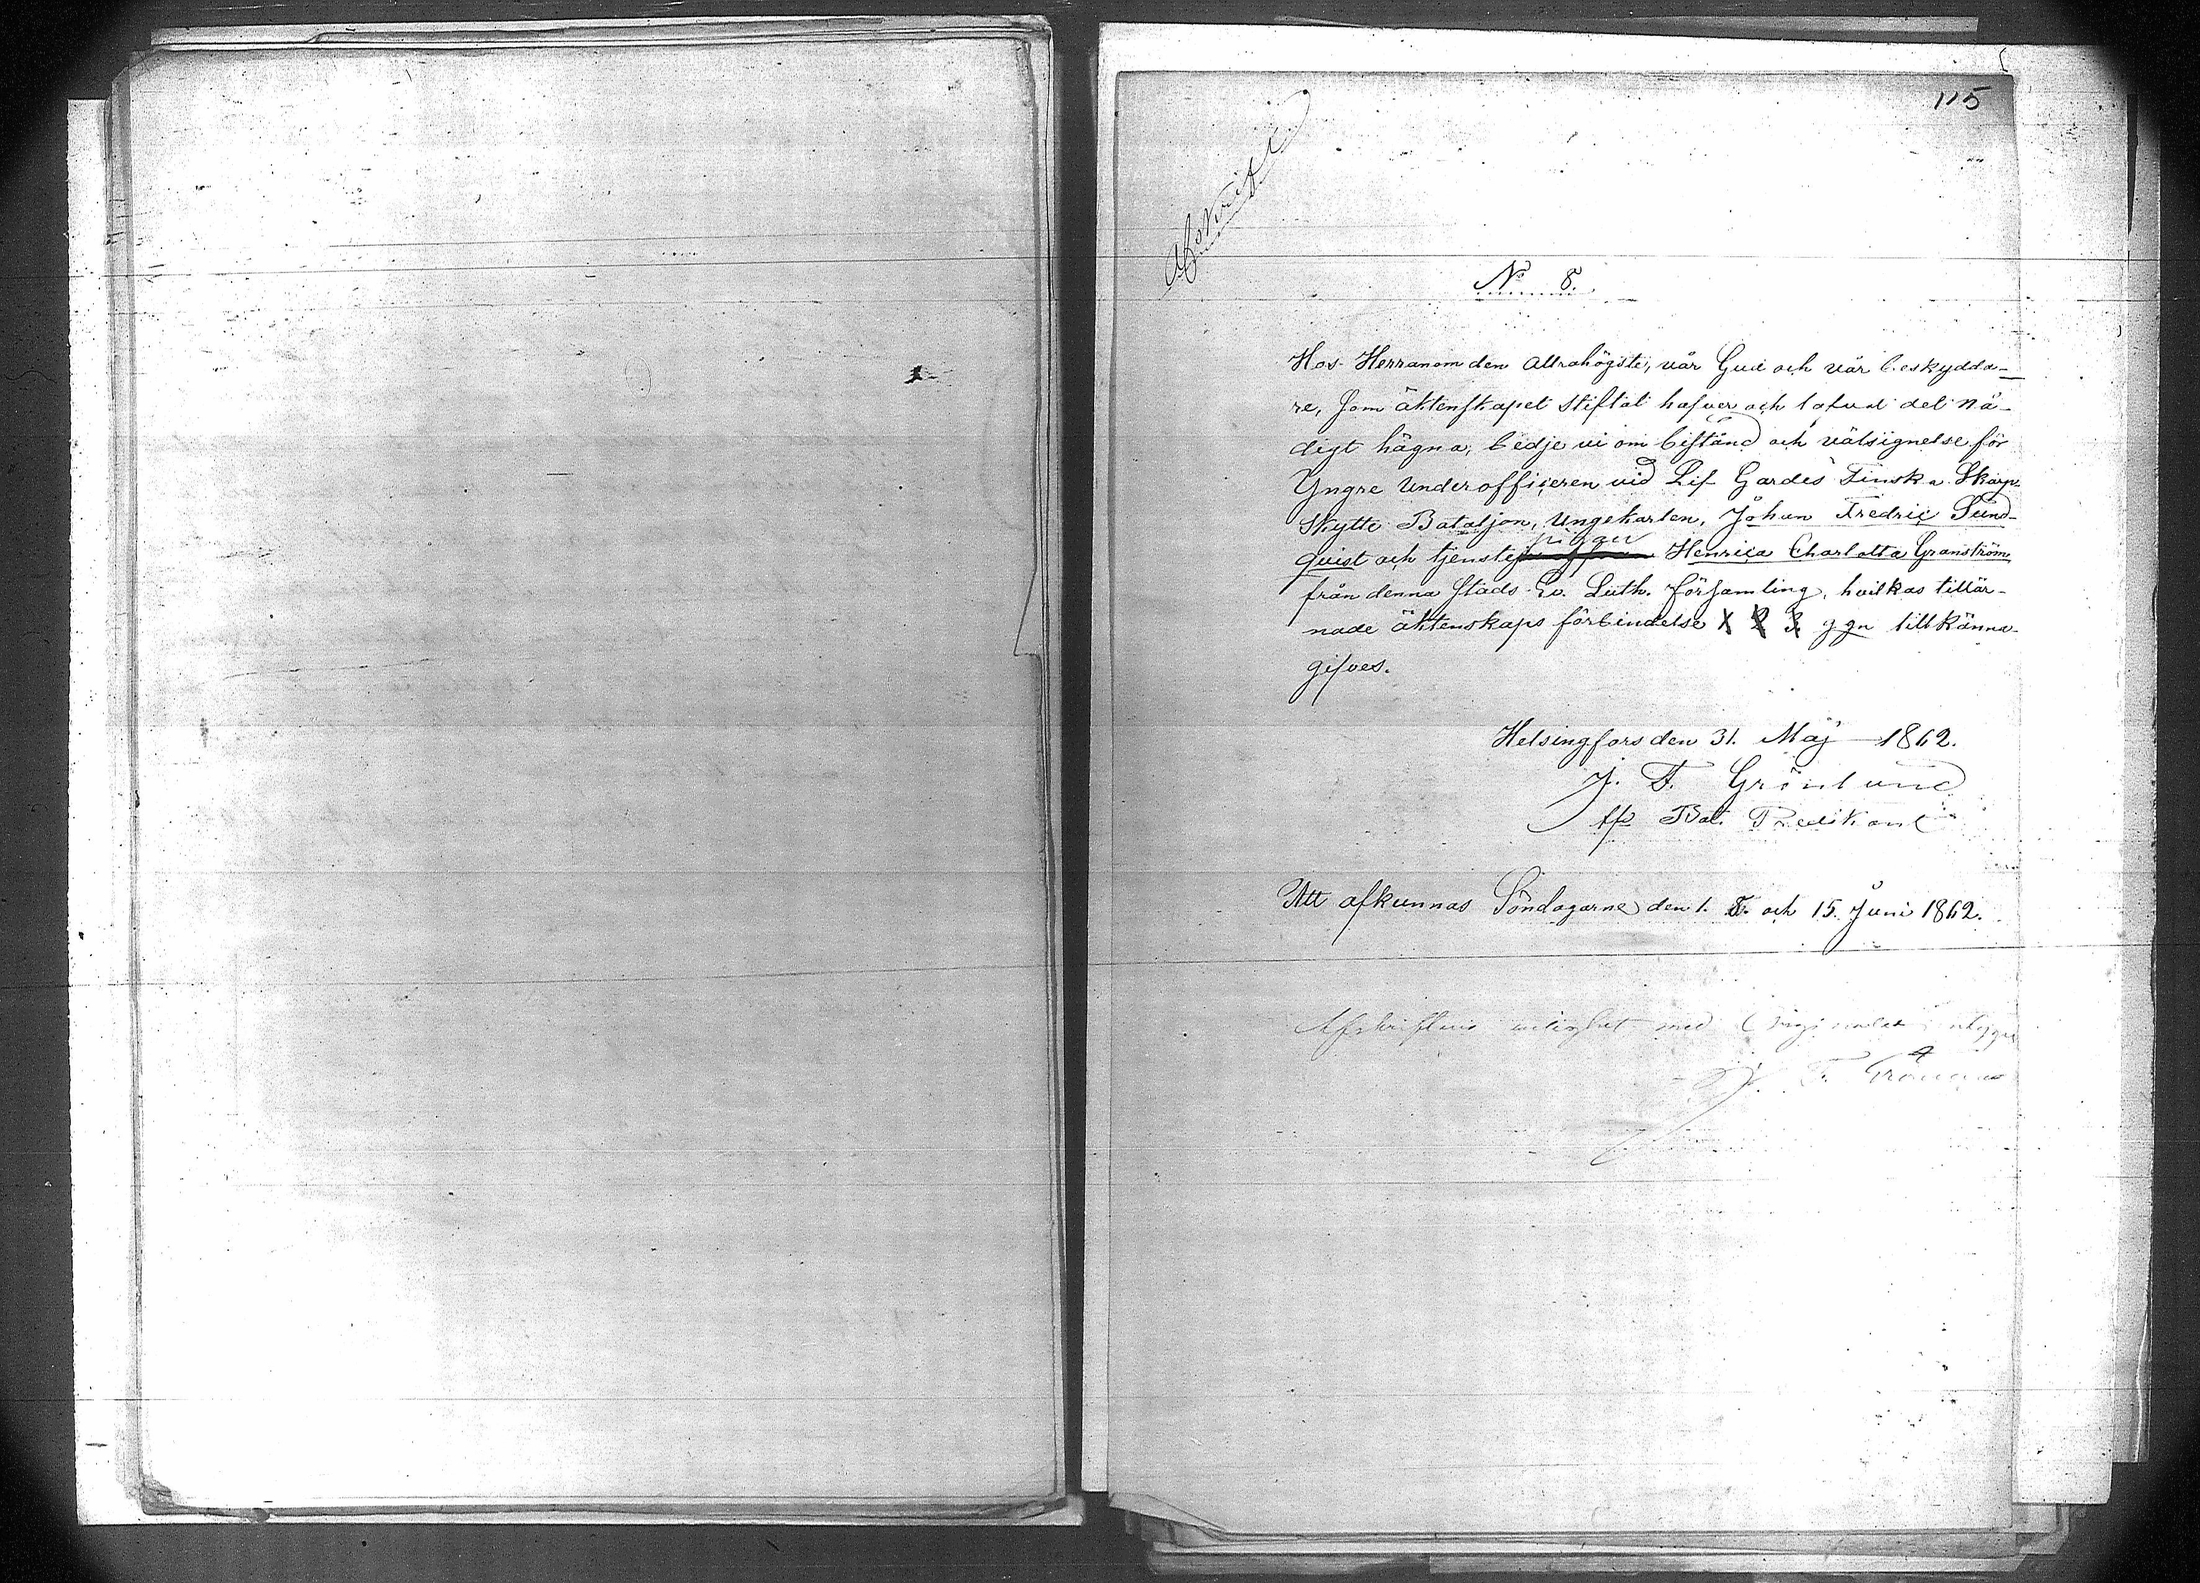 115
Afskrift
No 8.
Hos Herranom den Allrahögste, vår Gud och vår beskydda-
re, som äktenskapet stiftat hafver och lofvat det nå-
digt hägna, bedje vi om bistånd och välsignelse för
Yngre Underofficeren vid Lif Gardes Finska Skarp-
skytte Bataljon, Ungekarlen, Johan Fredric Sund-
quist och tjenste pigan Henrica Charlotta Granström
från denna stads Ev. Luth. församling, hvilkas tillär-
nade äktenskaps förbindelse 1 2 3 ggn tillkänna-
gifves.
Helsingfors den 31. Maj 1862.
J. F. Grönlund
Bat. Predikant
Att afkunnas Söndagarne den 1. 8. och 15. Juni 1862.
Afskriftens riktighet med Originalet intygar
J. F. Grönlund